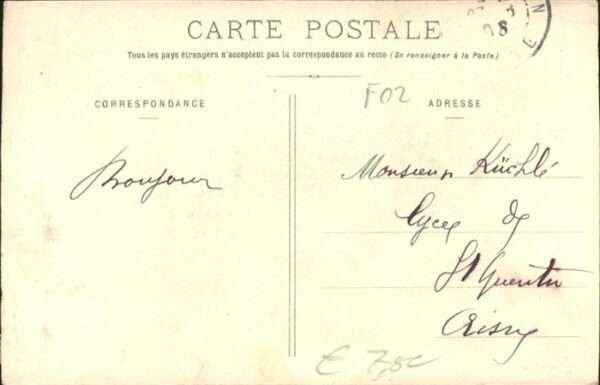 CARTE POSTALE
Tous les pays étrangers n'acceptent pas la correspondance au recto (Se renseigner à la Poste)
F02
CORRESPONDANCE
ADRESSE
Bonjour
Monsieur Küchlé
Lycée de
St Quentin
Aisne
€ 7,80